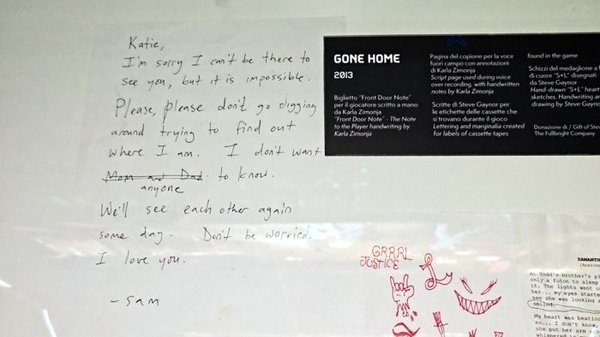 Katie,
I'm sorry I can't be there to
see you, but it is impossible.
Please, please don't go digging
around trying to find out
where I am. I don't want
Mom and Dad to know.
anyone
We'll see each other again
some day. Don't be worried.
I love you.
- Sam
GONE HOME
2013
Biglietto "Front Door Note"
per il giocatore scritto a mano
da Karla Zimonja
"Front Door Note" - The Note
to the Player handwriting by
Karla Zimonja
Pagina del copione per la voce
fuori campo con annotazioni
di Karla Zimonja
Script page used during voice
over recording, with handwritten
notes by Karla Zimonja
Scritte di Steve Gaynor per
le etichette delle cassette che
si trovano durante il gioco
Lettering and marginalia created
for labels of cassette tapes
found in the game
Schizzi del medaglione a f
di cuore "S+L" disegnati
da Steve Gaynor
Hand-drawn "S+L" heart
sketches. Handwriting an
drawing by Steve Gayno
Donazione di / Gift of Stev
The Fullbright Company
GRRRL
JUSTICE
SAMANTH
only a futon to sleep
it. The lights went o
her... my eyes starte
see she was looking a
smiled.
My heart was beatin
so... I don't know,
she put her arm
whispered